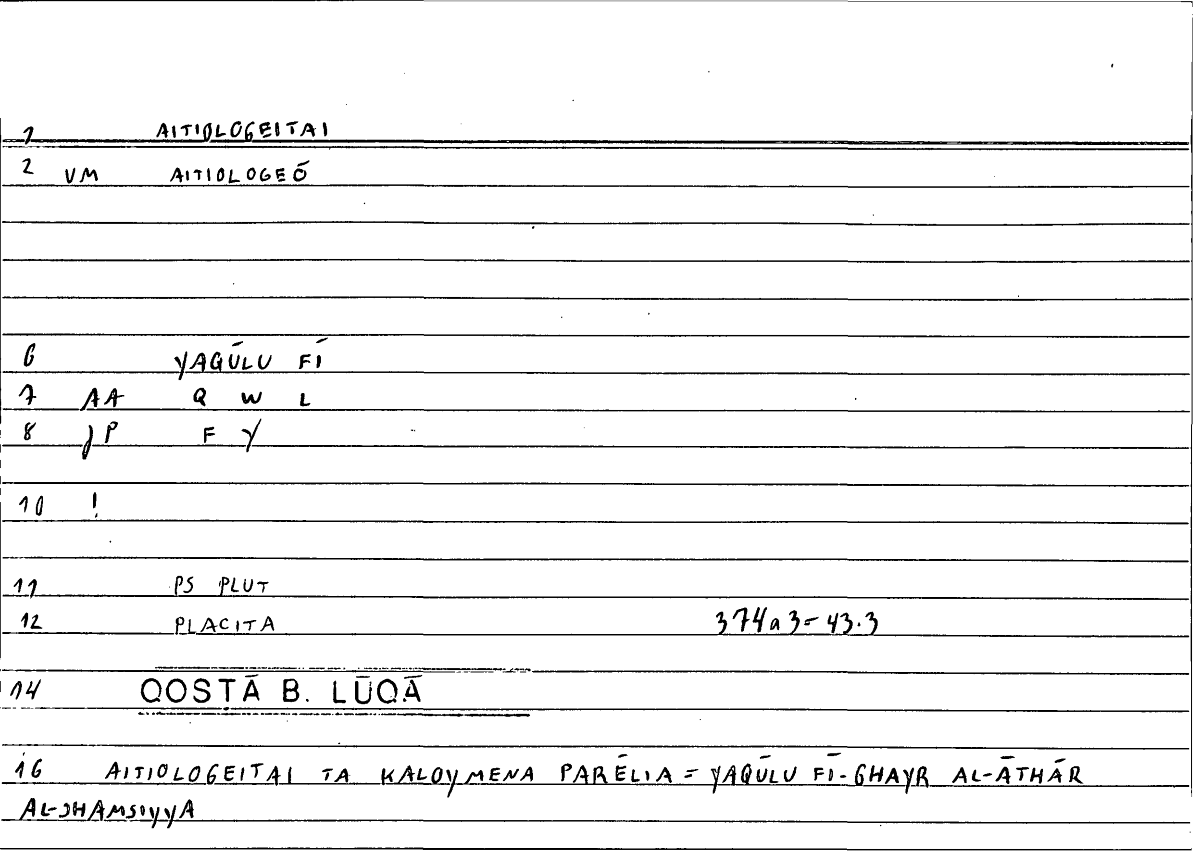 1 AITIOLOGEITAI
2 VM AITIOLOGEŌ
6 YAQŪLU FĪ
7 AA Q W L
8 JP F Y
10 !
11 PS PLUT
12 PLACITA 374a3=43.3
14 QOSṬĀ B. LŪQĀ
16 AITIOLOGEITAI TA KALOYMENA PARĒLIA = YAQŪLU FĪ-GHAYR AL-ĀTHĀR
AL-SHAMSIYYA